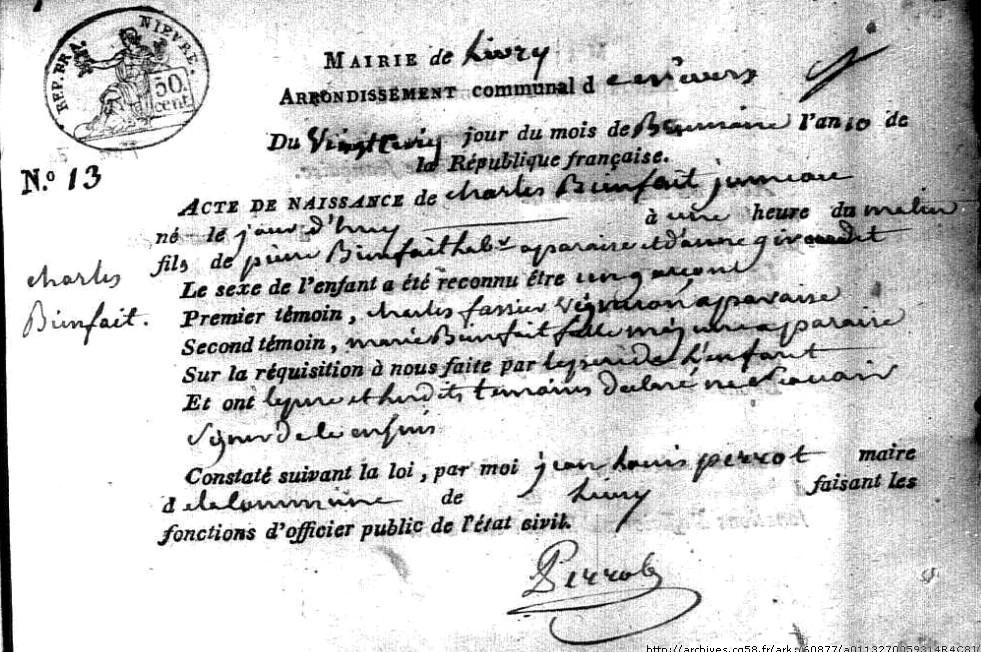 REP. FRA. NIEVRE.
50 cent
MAIRIE de Livry
ARRONDISSEMENT communal d e nevers
Du Vingt jour du mois de Brumaire l'an 10 de
la République française.
N.o 13
ACTE DE NAISSANCE de charles Bienfait jumeau
né le jour d'huy à une heure du matin
fils de pierre Bienfait labr aparaise et d'anne giraudet
charles
Bienfait.
Le sexe de l'enfant a été reconnu être un garçont
Premier témoin, charles vigneron aparaise
Second témoin, marie Bienfait fille aparaise
Sur la réquisition à nous faite par le pere de l'enfant
Et ont le pere et lesdits temoins declaré ne scavoir
signer de ce enquis
Constaté suivant la loi, par moi jean Louis perrot maire
d e la Commune de Livry faisant les
fonctions d'officier public de l'état civil.
Perrot